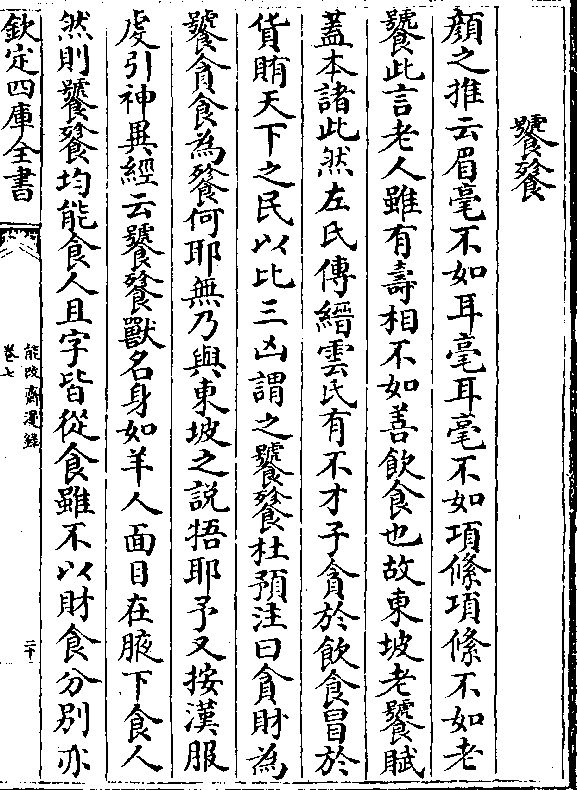 饕餮
顔之推云眉毫不如耳毫耳毫不如項絛項絛不如老
饕此言老人雖有壽相不如善飲食也故東坡老饕賦
蓋本諸此然左氏傳縉雲氏有不才子貪於飲食冒於
貨賄天下之民以比三凶謂之饕餮杜預注曰貪財為
饕貪食為餮何耶無乃與東坡之説牾耶予又按漢服
䖍引神異經云饕餮獸名身如羊人面目在腋下食人
然則饕餮均能食人且字皆從食雖不以財食分別亦
欽定四庫全書
能改齋漫録
卷七
二十